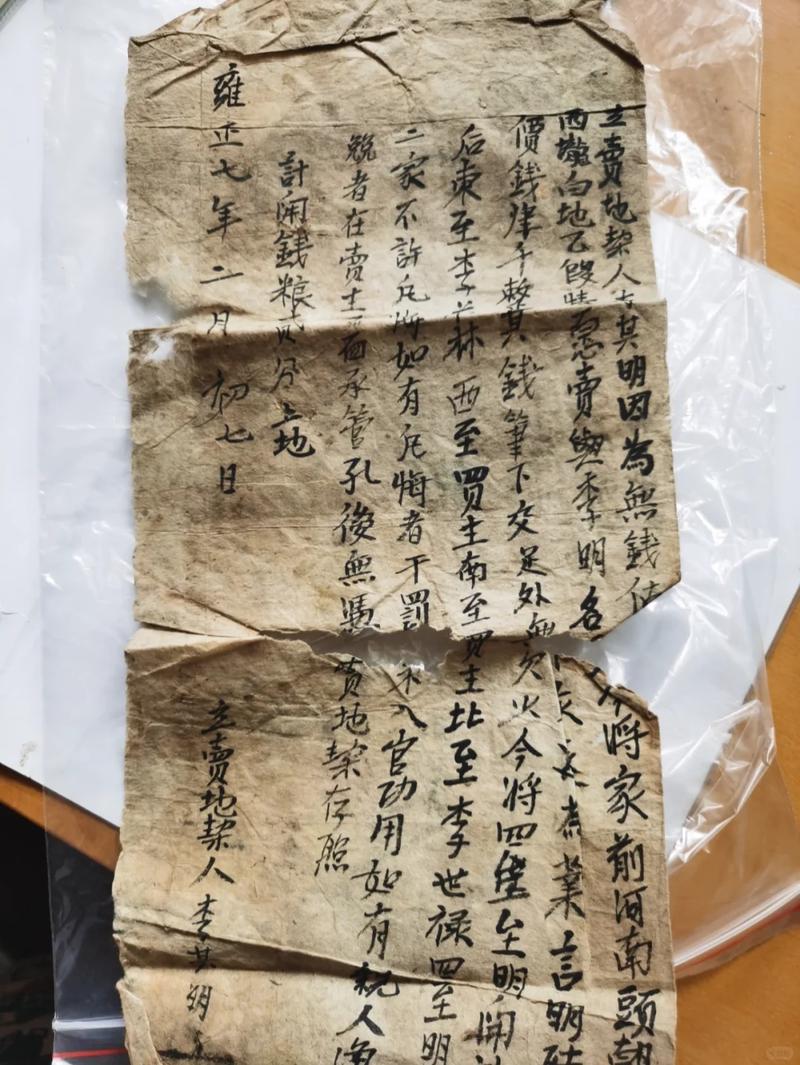 立賣地契人李其明因為無錢使 將家前河南頭
西壠白地乙段 賣與李明名 業言明
價錢 千整其錢筆下交足外無欠少今將四至明開
后東至李 林西至買主南至買主北至李世禄四至明
二家不許反悔如有反悔者干罰 米入官功用如有親人
競者在賣主一面承管孔後無憑賣地契存照
計開錢粮貳分立地
雍正七年二月初七日
立賣地契人李其明